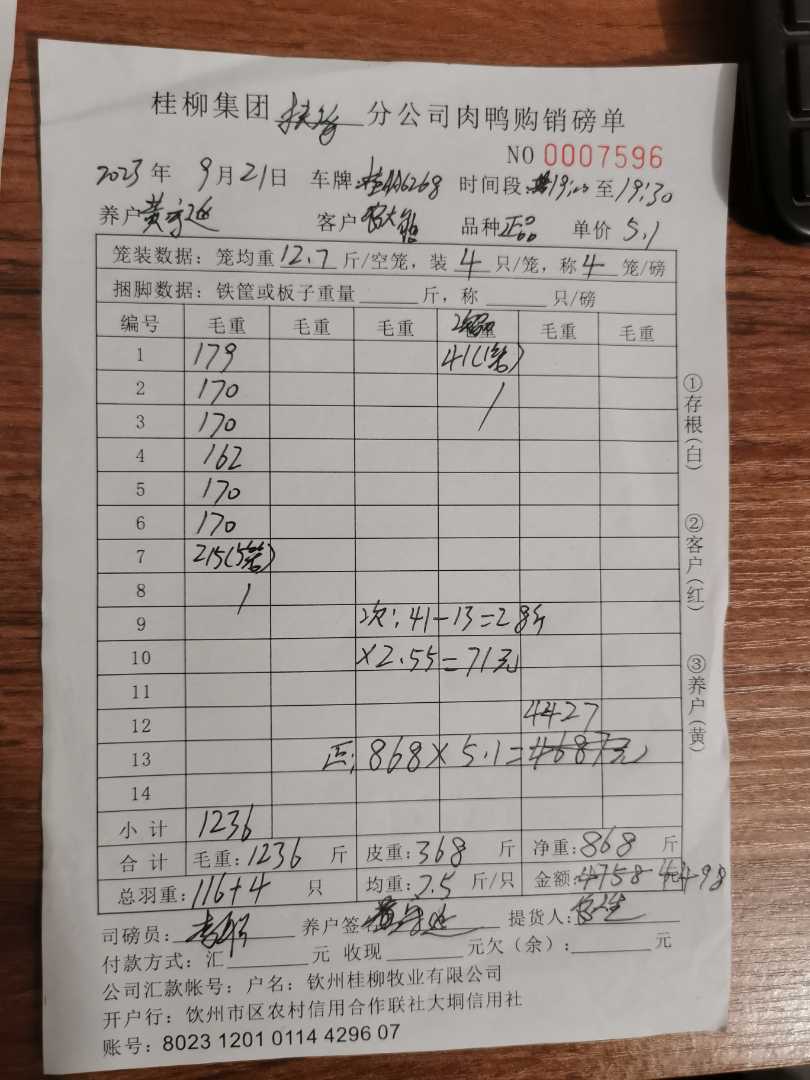 桂柳集团 扶绥 分公司肉鸭购销磅单
NO 0007596
2023年 9月21日 车牌:桂AA6268 时间段: 19:00至19:30
养户 黄 客户 品种 正品 单价 5.1
笼装数据: 笼均重 12.7 斤/空笼, 装 4 只/笼, 称 4 笼/磅
捆脚数据: 铁筐或板子重量 斤, 称 只/磅
编号 毛重 毛重 毛重 毛重 毛重
1 179 41(1笼)
2 170
3 170
4 162
5 170
6 170
7 215(5笼)
8
9 次: 41-13=28斤
10 ×2.55=71元
11
12 4427
13 正: 868×5.1=4687元
14
小计 1236
合计 毛重: 1236 斤 皮重: 368 斤 净重: 868 斤
总羽重: 116+4 只 均重: 7.5 斤/只 金额: 4758 元 4498
司磅员: 养户签 黄 提货人:
付款方式: 汇 元 收现 元欠(余): 元
公司汇款帐号: 户名: 钦州桂柳牧业有限公司
开户行: 钦州市区农村信用合作联社大垌信用社
账号: 8023 1201 0114 4296 07
①存根(白)
②客户(红)
③养户(黄)